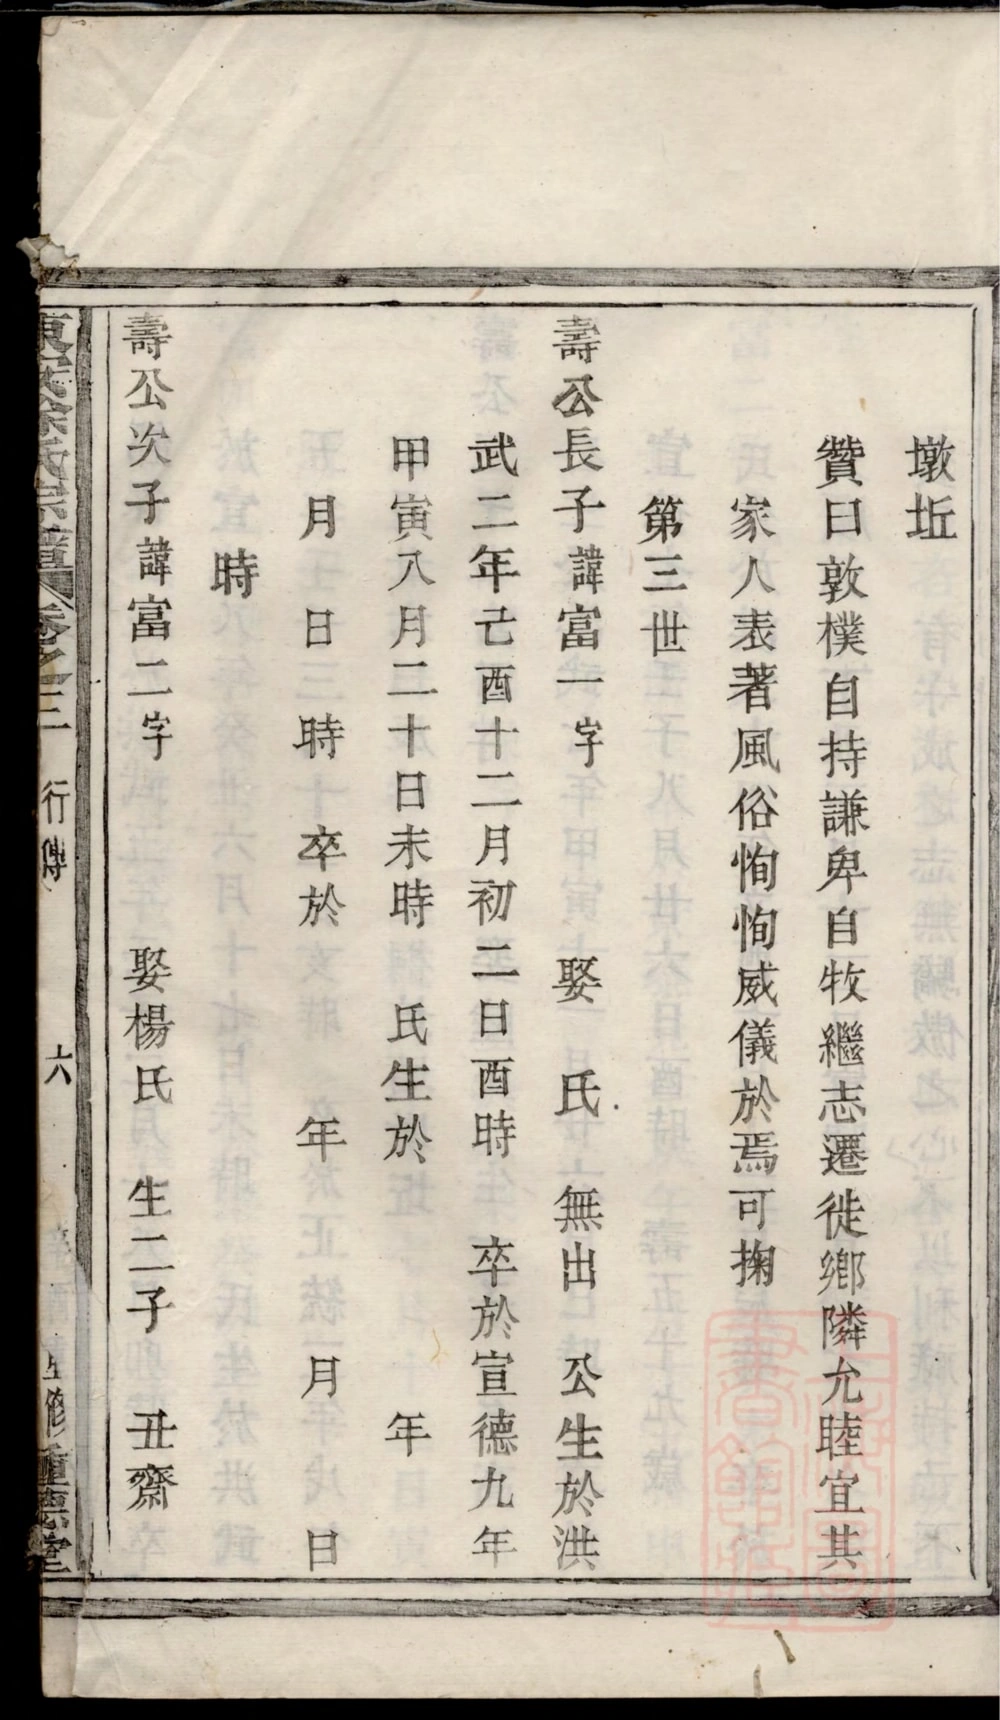 墩坵
贊曰敦樸自持謙卑自牧繼志遷徙鄉隣允睦宜其
家人表著風俗恂恂威儀於焉可掬
第三世
壽公長子諱富一字 娶 氏 無出 公生於洪
武二年己酉十二月初二日酉時 卒於宣德九年
甲寅八月二十日未時 氏生於 年
月 日 時 卒於 年 月 日
時
壽公次子諱富二字 娶楊氏 生二子 丑齋
徐氏宗譜 卷之三 行傳 六 重修 德堂